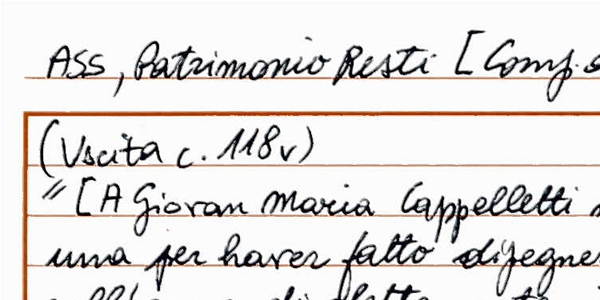 ASS, Patrimonio Resti [Comp.
(Uscita c. 118v)
"[A Giovan Maria Cappelletti
una per haver fatto disegne